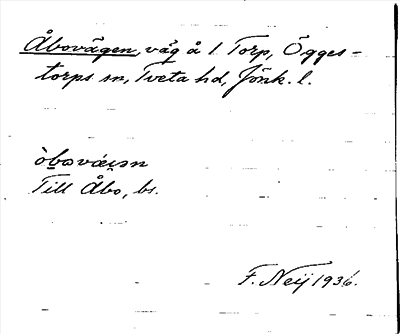 Åbovägen, väg å 1 Torp, Ögges-
torps sn, Tveta hd, Jönk. l.
Till Åbo, bs.
F. Neij 1936.